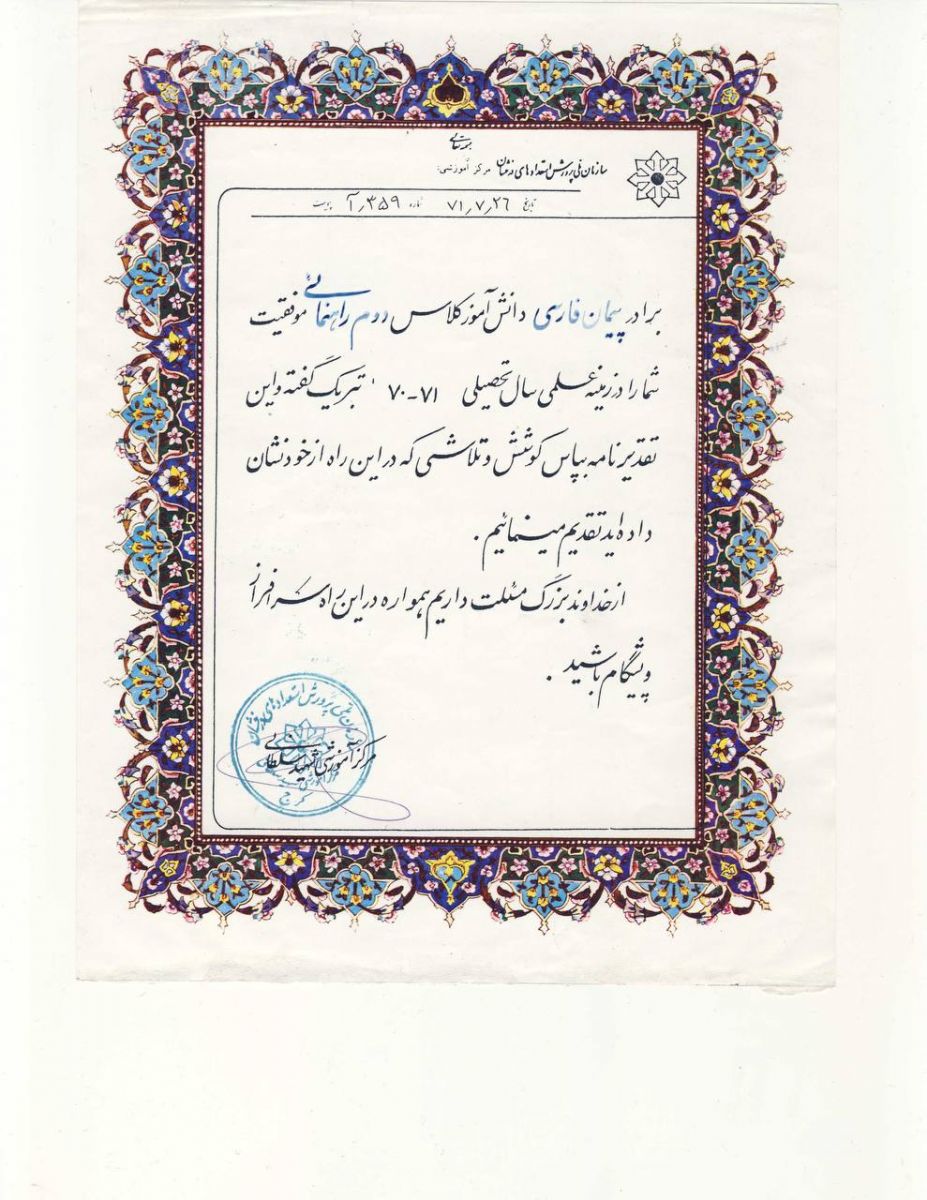 بسمه تعالی
سازمان ملی پرورش استعدادهای درخشان مرکز آموزشی:
تاریخ ۷۱٫۷٫۲۶ شماره ۳۵۹٫آ پیوست
برادر پیمان فارسی دانش آموز کلاس دوم راهنمائی موفقیت
شما را در زمینه علمی سال تحصیلی ۷۱-۷۰ تبریک گفته و این
تقدیرنامه بپاس کوشش و تلاشی که در این راه از خود نشان
داده اید تقدیم مینمائیم.
از خداوند بزرگ مسئلت داریم همواره در این راه سرافراز
و پیشگام باشید.
سازمان ملی پرورش استعدادهای درخشان
مرکز آموزشی شهید سلطانی
کرج